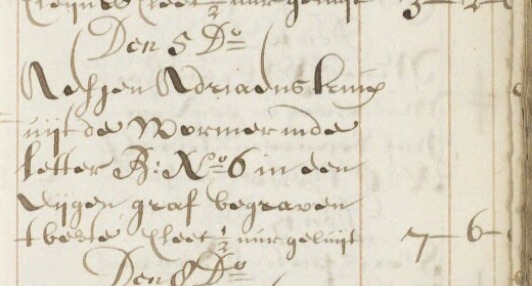 cleet ½ uur geluijt 3 – 2
Den 5 Do
Aeltjen Adriaens
uijt de Wormer inde
letter B: No 6 in een
eijgen graf begraven
t beste cleet ½ uur geluijt 7 – 6 –
Den 8 Do